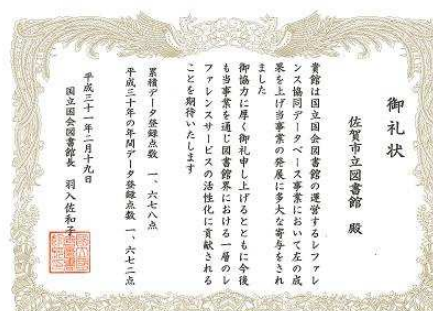 御礼状
佐賀市立図書館 殿
貴館は国立国会図書館の運営するレファレ
ンス協同データベース事業において左の成
果を上げ当事業の発展に多大な寄与をされ
ました
御協力に厚く御礼申し上げるとともに今後
も当事業を通じ図書館界における一層のレ
ファレンスサービスの活性化に貢献される
ことを期待いたします
累積データ登録点数 一、六七八点
平成三十年の年間データ登録点数 一、六七二点
平成三十一年二月十九日
国立国会図書館長 羽入佐和子